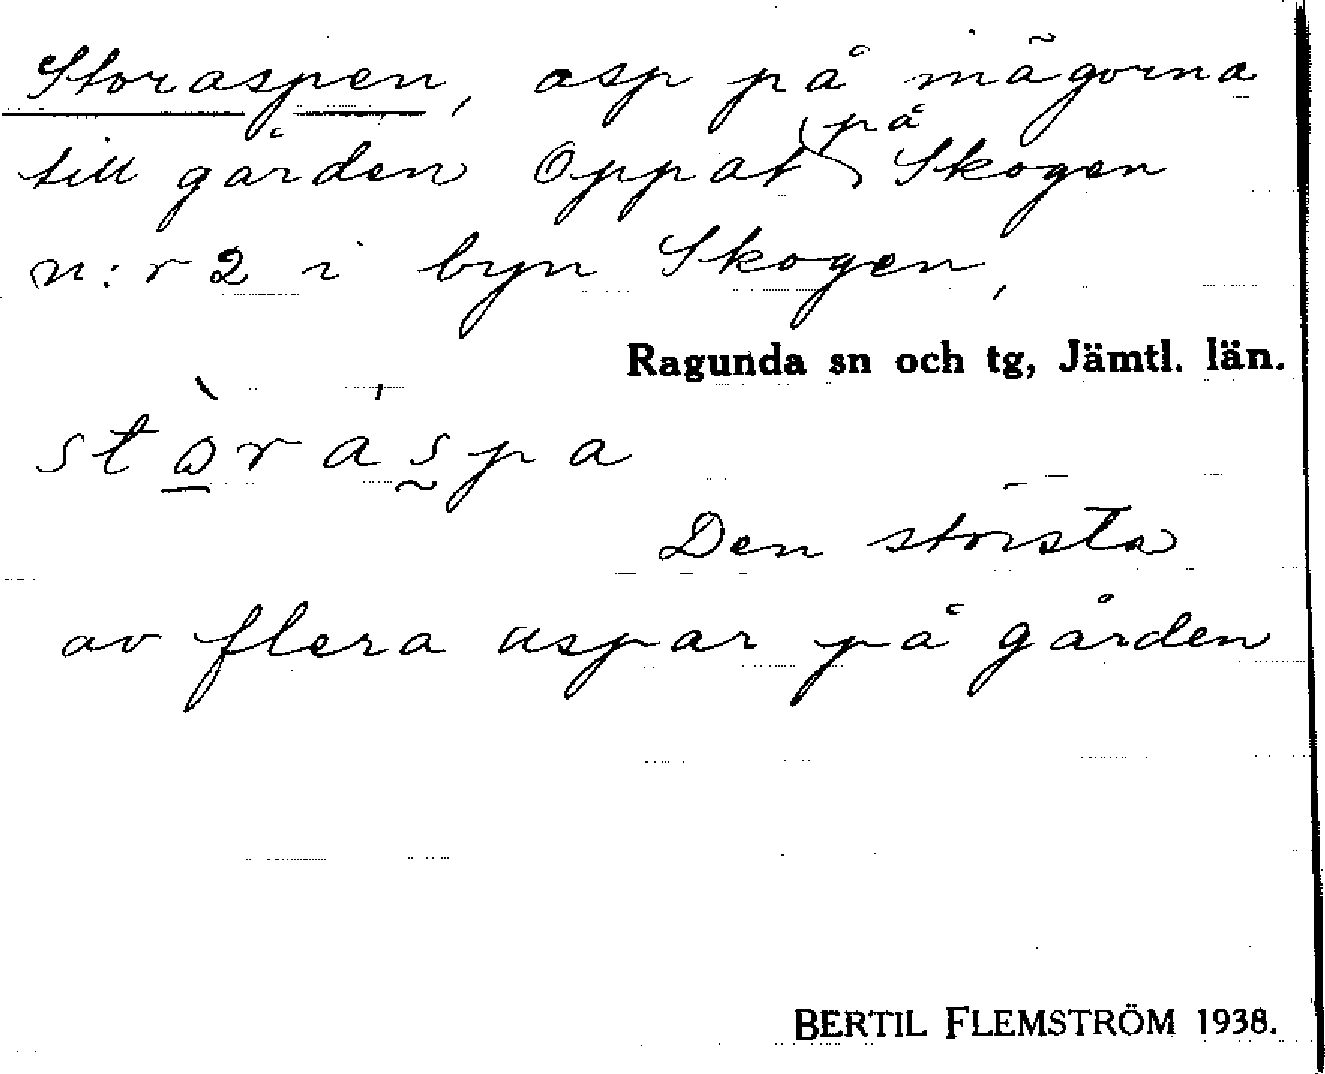 Storaspen, asp på mägorna
till gården Oppat på Skogen
n:r 2 i byn Skogen,
Ragunda sn och tg, Jämtl. län.
Den största
av flera aspar på gården
BERTIL FLEMSTRÖM 1938.